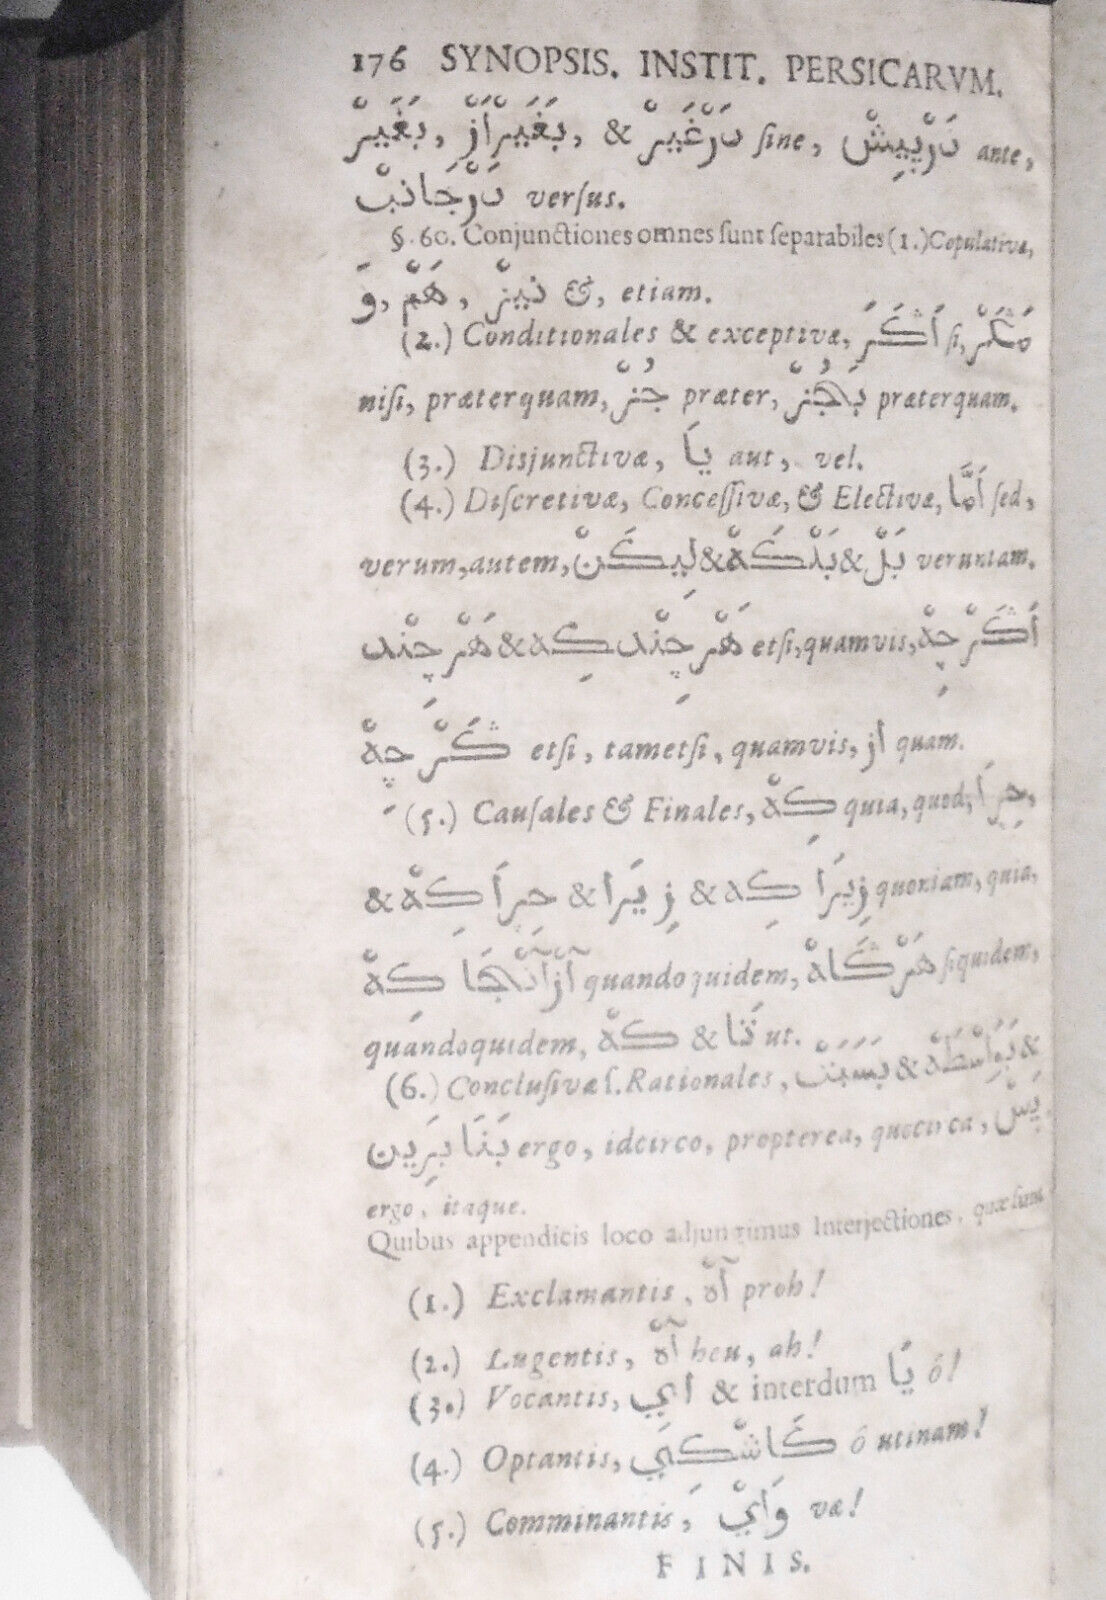 176 SYNOPSIS. INSTIT. PERSICARVM.
بَغَيرْ, بَغَيرْاَزْ, & دَرْغَيرْ sine, دَرْپِيشْ ante,
دَرْجَانبْ verſus.
§. 60. Conjunctiones omnes ſunt ſeparabiles (1.) Copulativæ,
وَ, هَمْ, نيزْ &, etiam.
(2.) Conditionales & exceptivæ, اَڭَرْ ſi, مَڭَرْ
niſi, præterquam, جُزْ præter, بَجُزْ præterquam.
(3.) Disjunctivæ, يَا aut, vel.
(4.) Diſcretivæ, Conceſſivæ, & Electivæ, اَمَّا ſed,
verum, autem, لِيكَنْ & بَلْكَهْ & بَلْ veruntam.
هَرْچَنْد & هَرْچَنْد كِه etſi, quamvis, اَڭَرْچِهْ
ڭَرْچِهْ etſi, tametſi, quamvis, از quam.
(5.) Cauſales & Finales, كهْ quia, quod, چِرَا,
& چِرَا كهْ & زِيَرا & زِيرَا كِه quoniam, quia,
آزْآنْجَا كهْ quandoquidem, هَرْڭَاهْ ſiquidem,
quandoquidem, كهْ & تَا ut.
(6.) Concluſivæ ſ. Rationales, بَسَبَبْ & بَوَاسْطَهْ &
بَنَا بَرِين ergo, idcirco, propterea, quocirca, پَسْ
ergo, itaque.
Quibus appendicis loco adjungimus Interjectiones, quæ ſunt
(1.) Exclamantis, آهْ proh!
(2.) Lugentis, آهْ heu, ah!
(3.) Vocantis, اي & interdum يَا ó!
(4.) Optantis, كَاشْكِي ó utinam!
(5.) Comminantis, وَايْ væ!
FINIS.